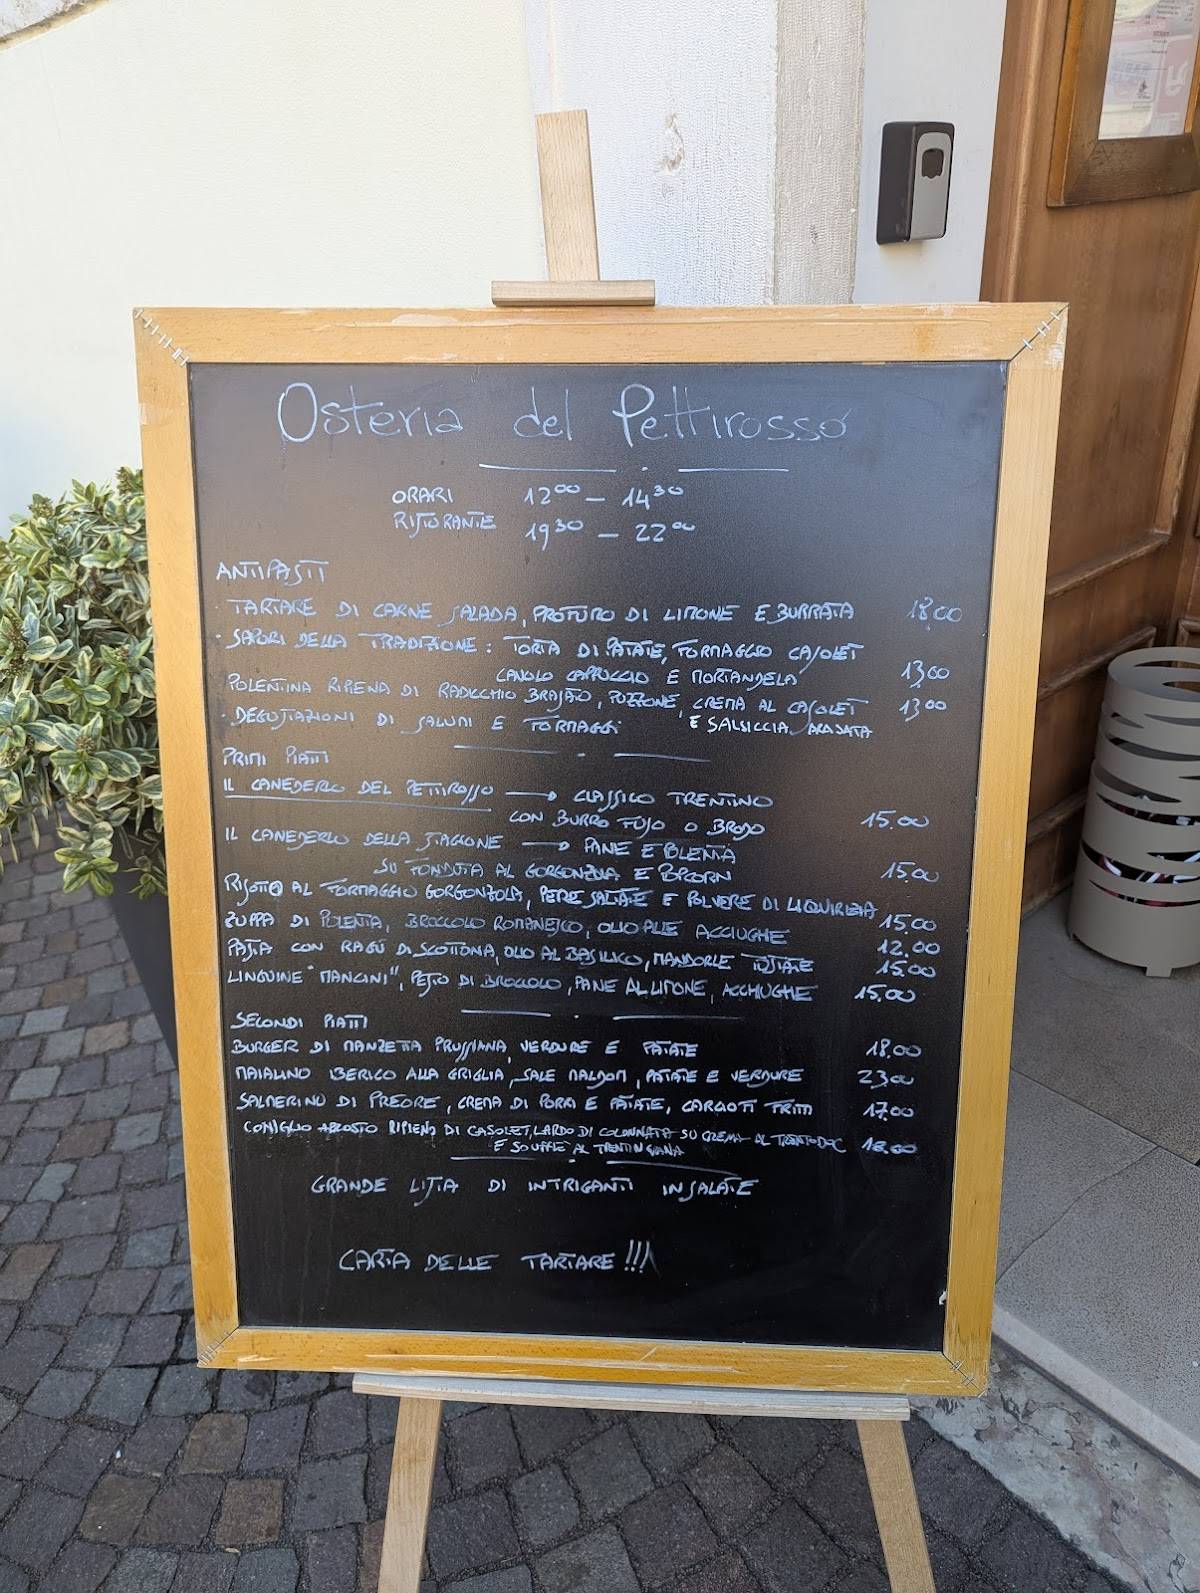 Osteria del Pettirosso
ORARI 12⁰⁰ - 14³⁰
RISTORANTE 19³⁰ - 22⁰⁰
ANTIPASTI
· TARTARE DI CARNE SALADA, PROFUMO DI LIMONE E BURRATA 18,00
· SAPORI DELLA TRADIZIONE: TORTA DI PATATE, FORMAGGIO CASOLET
CAVOLO CAPPUCCIO E MORTANDELA 13,00
POLENTINA RIPIENA DI RADICCHIO BRASATO, PUZZONE, CREMA AL CASOLET 13,00
E SALSICCIA
· DEGUSTAZIONI DI SALUMI E FORMAGGI
PRIMI PIATTI
IL CANEDERLO DEL PETTIROSSO → CLASSICO TRENTINO
CON BURRO FUSO O BRODO 15.00
IL CANEDERLO DELLA STAGIONE → PANE E POLENTA
SU FONDUTA AL GORGONZOLA E POPCORN 15.00
RISOTTO AL FORMAGGIO GORGONZOLA, PERE SALTATE E POLVERE DI LIQUIRIZIA 15,00
ZUPPA DI POLENTA, BROCCOLO ROMANESCO, OLIO ALLE ACCIUGHE 12.00
PASTA CON RAGÙ DI SCOTTONA, OLIO AL BASILICO, MANDORLE TOSTATE 15.00
LINGUINE "MANCINI", PESTO DI BROCCOLO, PANE AL LIMONE, ACCHIUGHE 15,00
SECONDI PIATTI
BURGER DI MANZETTA PRUSSIANA, VERDURE E PATATE 18.00
MAIALINO IBERICO ALLA GRIGLIA, SALE MALDOM, PATATE E VERDURE 23,00
SALMERINO DI PREORE, CREMA DI PORRI E PATATE, CARCIOFI FRITTI 17.00
CONIGLIO ARROSTO RIPIENO DI CASOLET, LARDO DI COLONNATA SU CREMA AL TRENTODOC 18.00
E SOUFFLÉ AL TRENTINGRANA
GRANDE LISTA DI INTRIGANTI INSALATE
CARTA DELLE TARTARE !!!